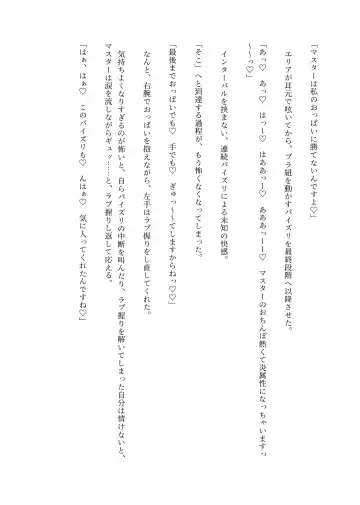 「マスターは私のおっぱいに勝てないんですよ♡」
エリアが耳元で呟いてから、ブラ紐を動かすパイズリを最終段階へ以降させた。
「あっ♡　あっ♡　はっー♡　はああっー♡　あああっーー♡　マスターのおちんぽ熱くて炎属性になっちゃいますっ
～～っ♡」
インターバルを挟まない、連続パイズリによる未知の快感。
「そこ」へと到達する過程が、もう怖くなくなってしまった。
「最後までおっぱいでも♡　手でも♡　ぎゅっ～～ってしますからねっ♡♡」
なんと、右腕でおっぱいを抱えながら、左手はラブ握りをし直してくれた。
気持ちよくなりすぎるのが怖いと、自らパイズリの中断を叫んだり、ラブ握りを解いてしまった自分は情けないと、
マスターは涙を流しながらギュッ……と、ラブ握りし返して応える。
「はぁ、はぁ♡　このパイズリも♡　んはぁ♡　気に入ってくれたんですね♡」